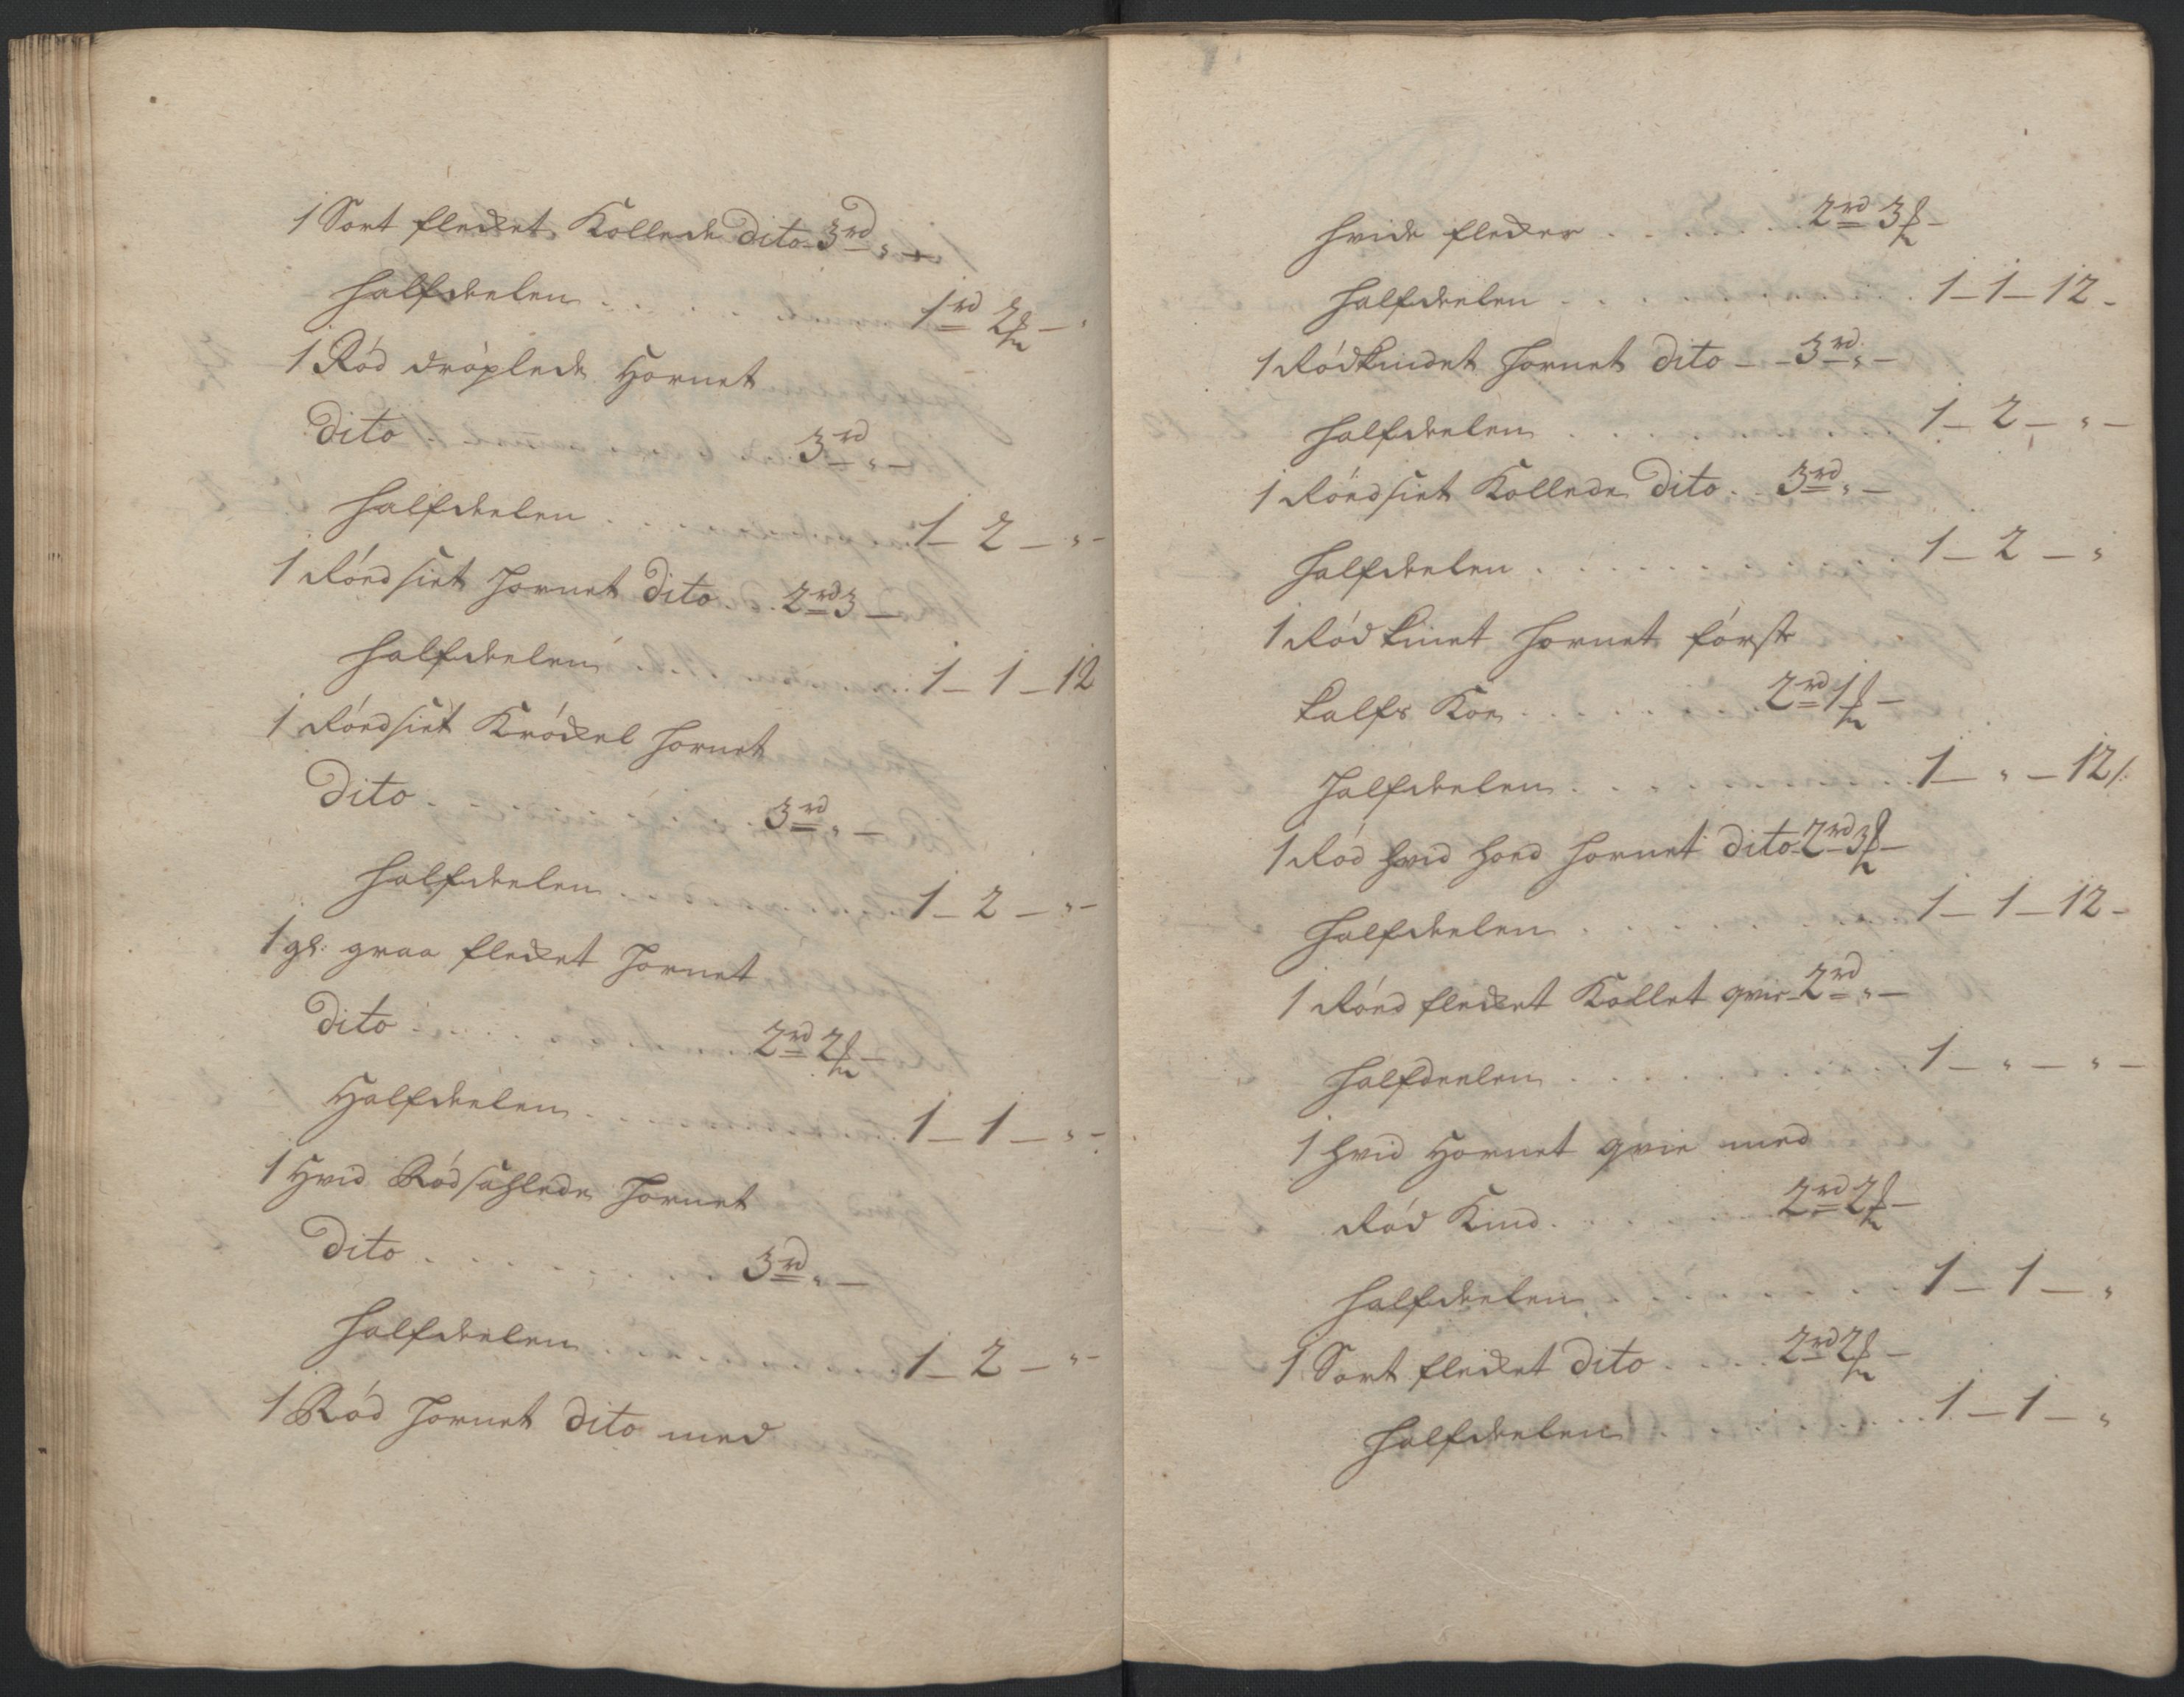 1 Sort flecket Kollede dito 3 rd „ –
halfdeelen . . . . 1 rd 2 ß – „
1 Ród dróplede Hornet
dito 3 rd „ –
halfdeelen . . . . 1 – 2 – „ –
1 Rónd siet hornet dito . . 2 rd 3 –
halfdeelen . . . . 1 – 1 – 12
1 Róndsiet Króckel hornet
dito . . . . 3 rd „ –
halfdeelen . . . . 1 – 2 – „ –
1 gl: graa flecket hornet
dito . . . . 2 rd 2 ß –
Halfdeelen . . . . 1 – 1 – „ –
1 HvidRód sahlede hornet
dito . . . . 3 rd „ –
halfdeelen . . . . 1 – 2 – „ –
1 Ród hornet dito med
hvide flecker . . . . 2 rd 3 ß –
halfdeelen . . . . 1 – 1 – 12 –
1 Ródkindet hornet dito – – 3 rd „ –
halfdeelen . . . . 1 – 2 – „ –
1 Róndsiet Kollede dito . . 3 rd „ –
halfdeelen . . . . 1 – 2 – „
1 Ród kinet hornet fórste
kalfs Koe . . . . 2 rd 1 ß –
halfdeelen . . . . 1 – „ – 12 /:
1 Ród hvid hoed hornet dito 2 rd 3 ß –
halfdeelen . . . . 1 – 1 – 12 –
1 Rónd flecket Kollet qvie 2 rd „ –
halfdeelen . . . . 1 – „ – „ –
1 hvid Hornet qvie med
Ród Kind . . . . 2 rd 2 ß –
halfdeelen . . . . 1 – 1 – „
1 Sort flecket dito . . . 2 rd 2 ß –
halfdeelen . . . . 1 – 1 – „